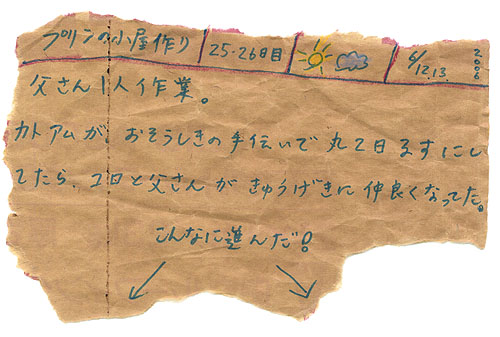 プリンの小屋作り 25-26日目 6/12.13. 2006
父さん1人作業。
カトアムが おそうしきの手伝いで 丸2日 るすにし
てたら、コロと父さんが きゅうげきに 仲良くなってた。
こんなに進んだ!